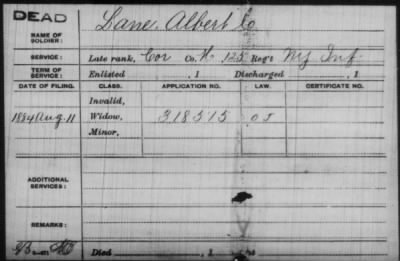 DEAD
NAME OF SOLDIER: Lane, Albert
SERVICE: Late rank, Cor Co. H, 125 Reg't NY Inf.
TERM OF SERVICE: Enlisted , 1 Discharged , 1
DATE OF FILING. CLASS. APPLICATION NO. LAW. CERTIFICATE NO.
Invalid,
1884 Aug. 11 Widow, 318515
Minor,
ADDITIONAL SERVICES:
REMARKS:
Died , 1